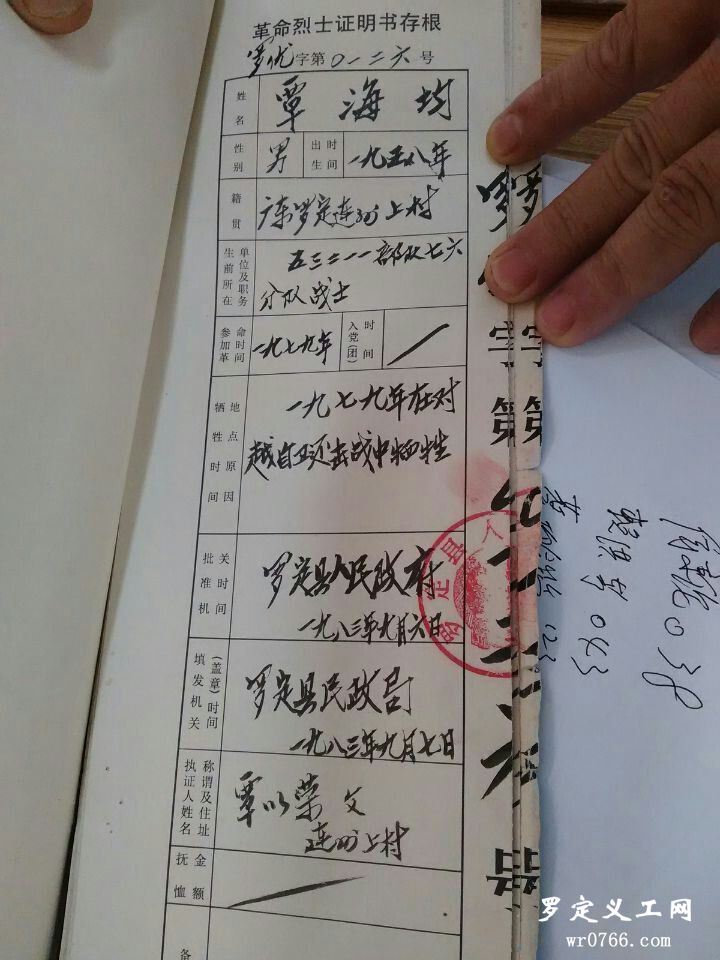 革命烈士证明书存根
罗优字第0一二六号
姓名 覃海均
性别 男 出生时间 一九五八年
籍贯 广东罗定连州上村
生前所在单位及职务 五三二一一部队七六
分队战士
参加革命时间 一九七九年 入党(团)时间
牺牲时间地点原因 一九七九年在对
越自卫还击战中牺牲
批准机关时间 罗定县人民政府
一九八三年九月六日
填发机关(盖章)时间 罗定县民政局
一九八三年九月七日
执证人姓名称谓及住址 覃以荣 父
连州上村
抚恤金额
备
罗定县人
字第
罗定义工网
wr0766.com